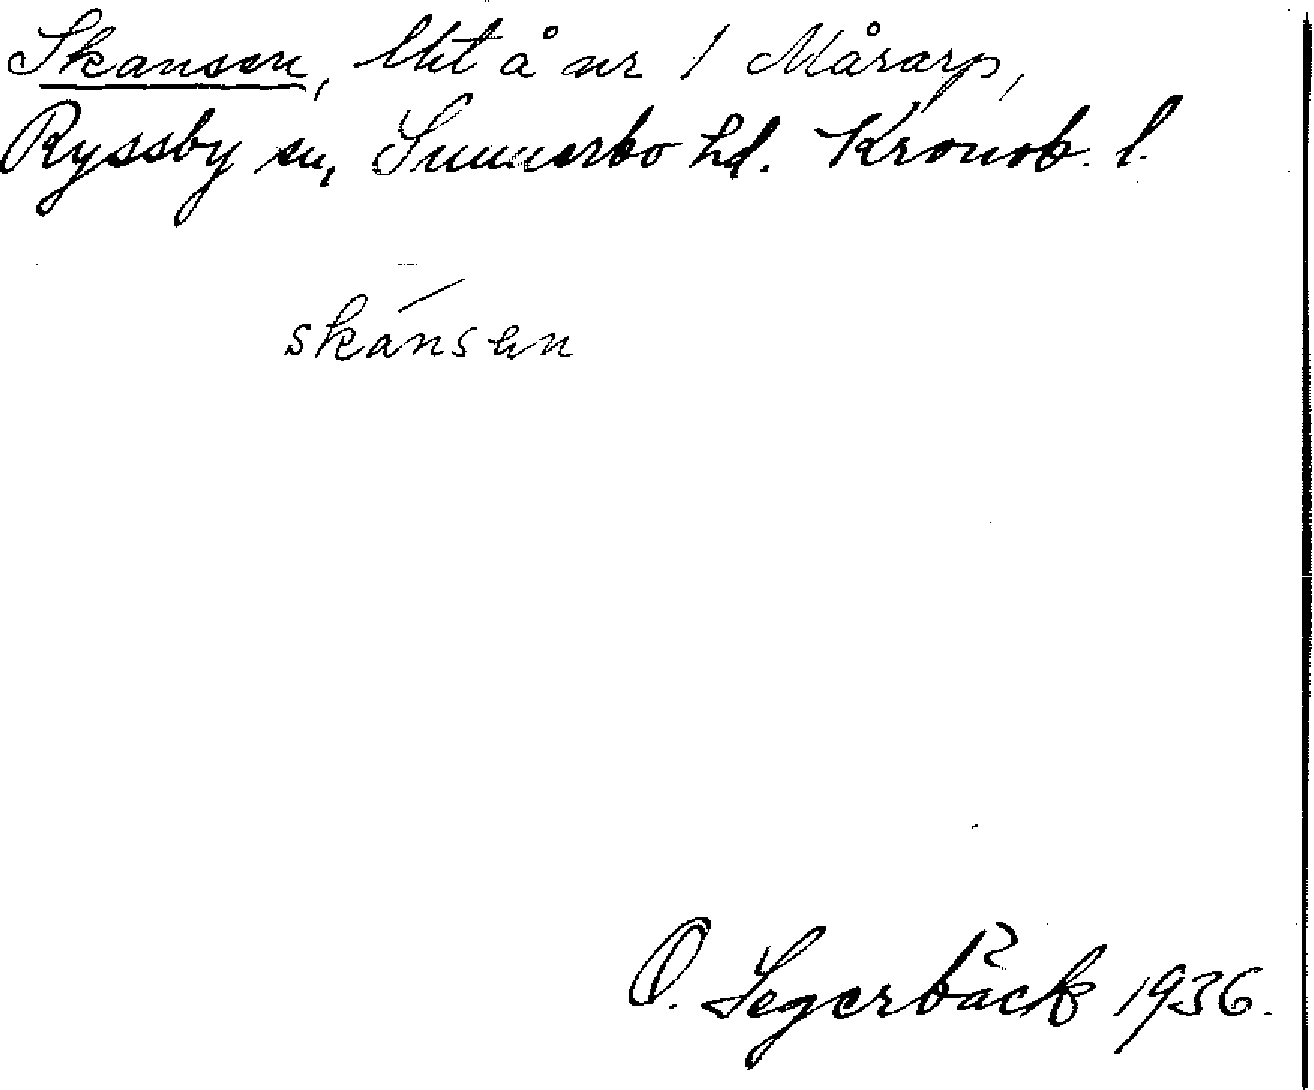 Skansen, lht å nr 1 Mårarp,
Ryssby sn, Sunnerbo hd. Kronob. l.
skánsen
O. Segerbäck 1936.